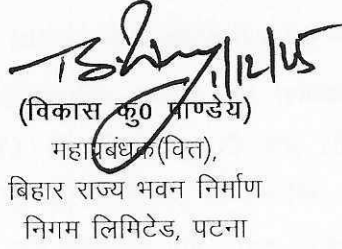 1/12/25
(विकास कु0 पाण्डेय)
महाप्रबंधक(वित्त),
बिहार राज्य भवन निर्माण
निगम लिमिटेड, पटना